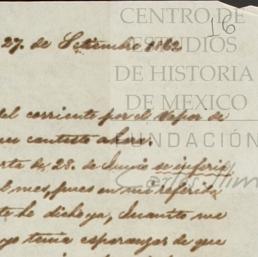 CENTRO DE
ESTUDIOS
DE HISTORIA
DE MEXICO
FUNDACIÓN
16
27. de Setiembre 1862
del corriente por el Vapor de
contesto ahora.
de 28. de Junio se inferia
mes, pues en mi referida
te he dicho ya, cuanto me
yo tenia esperanzas de que